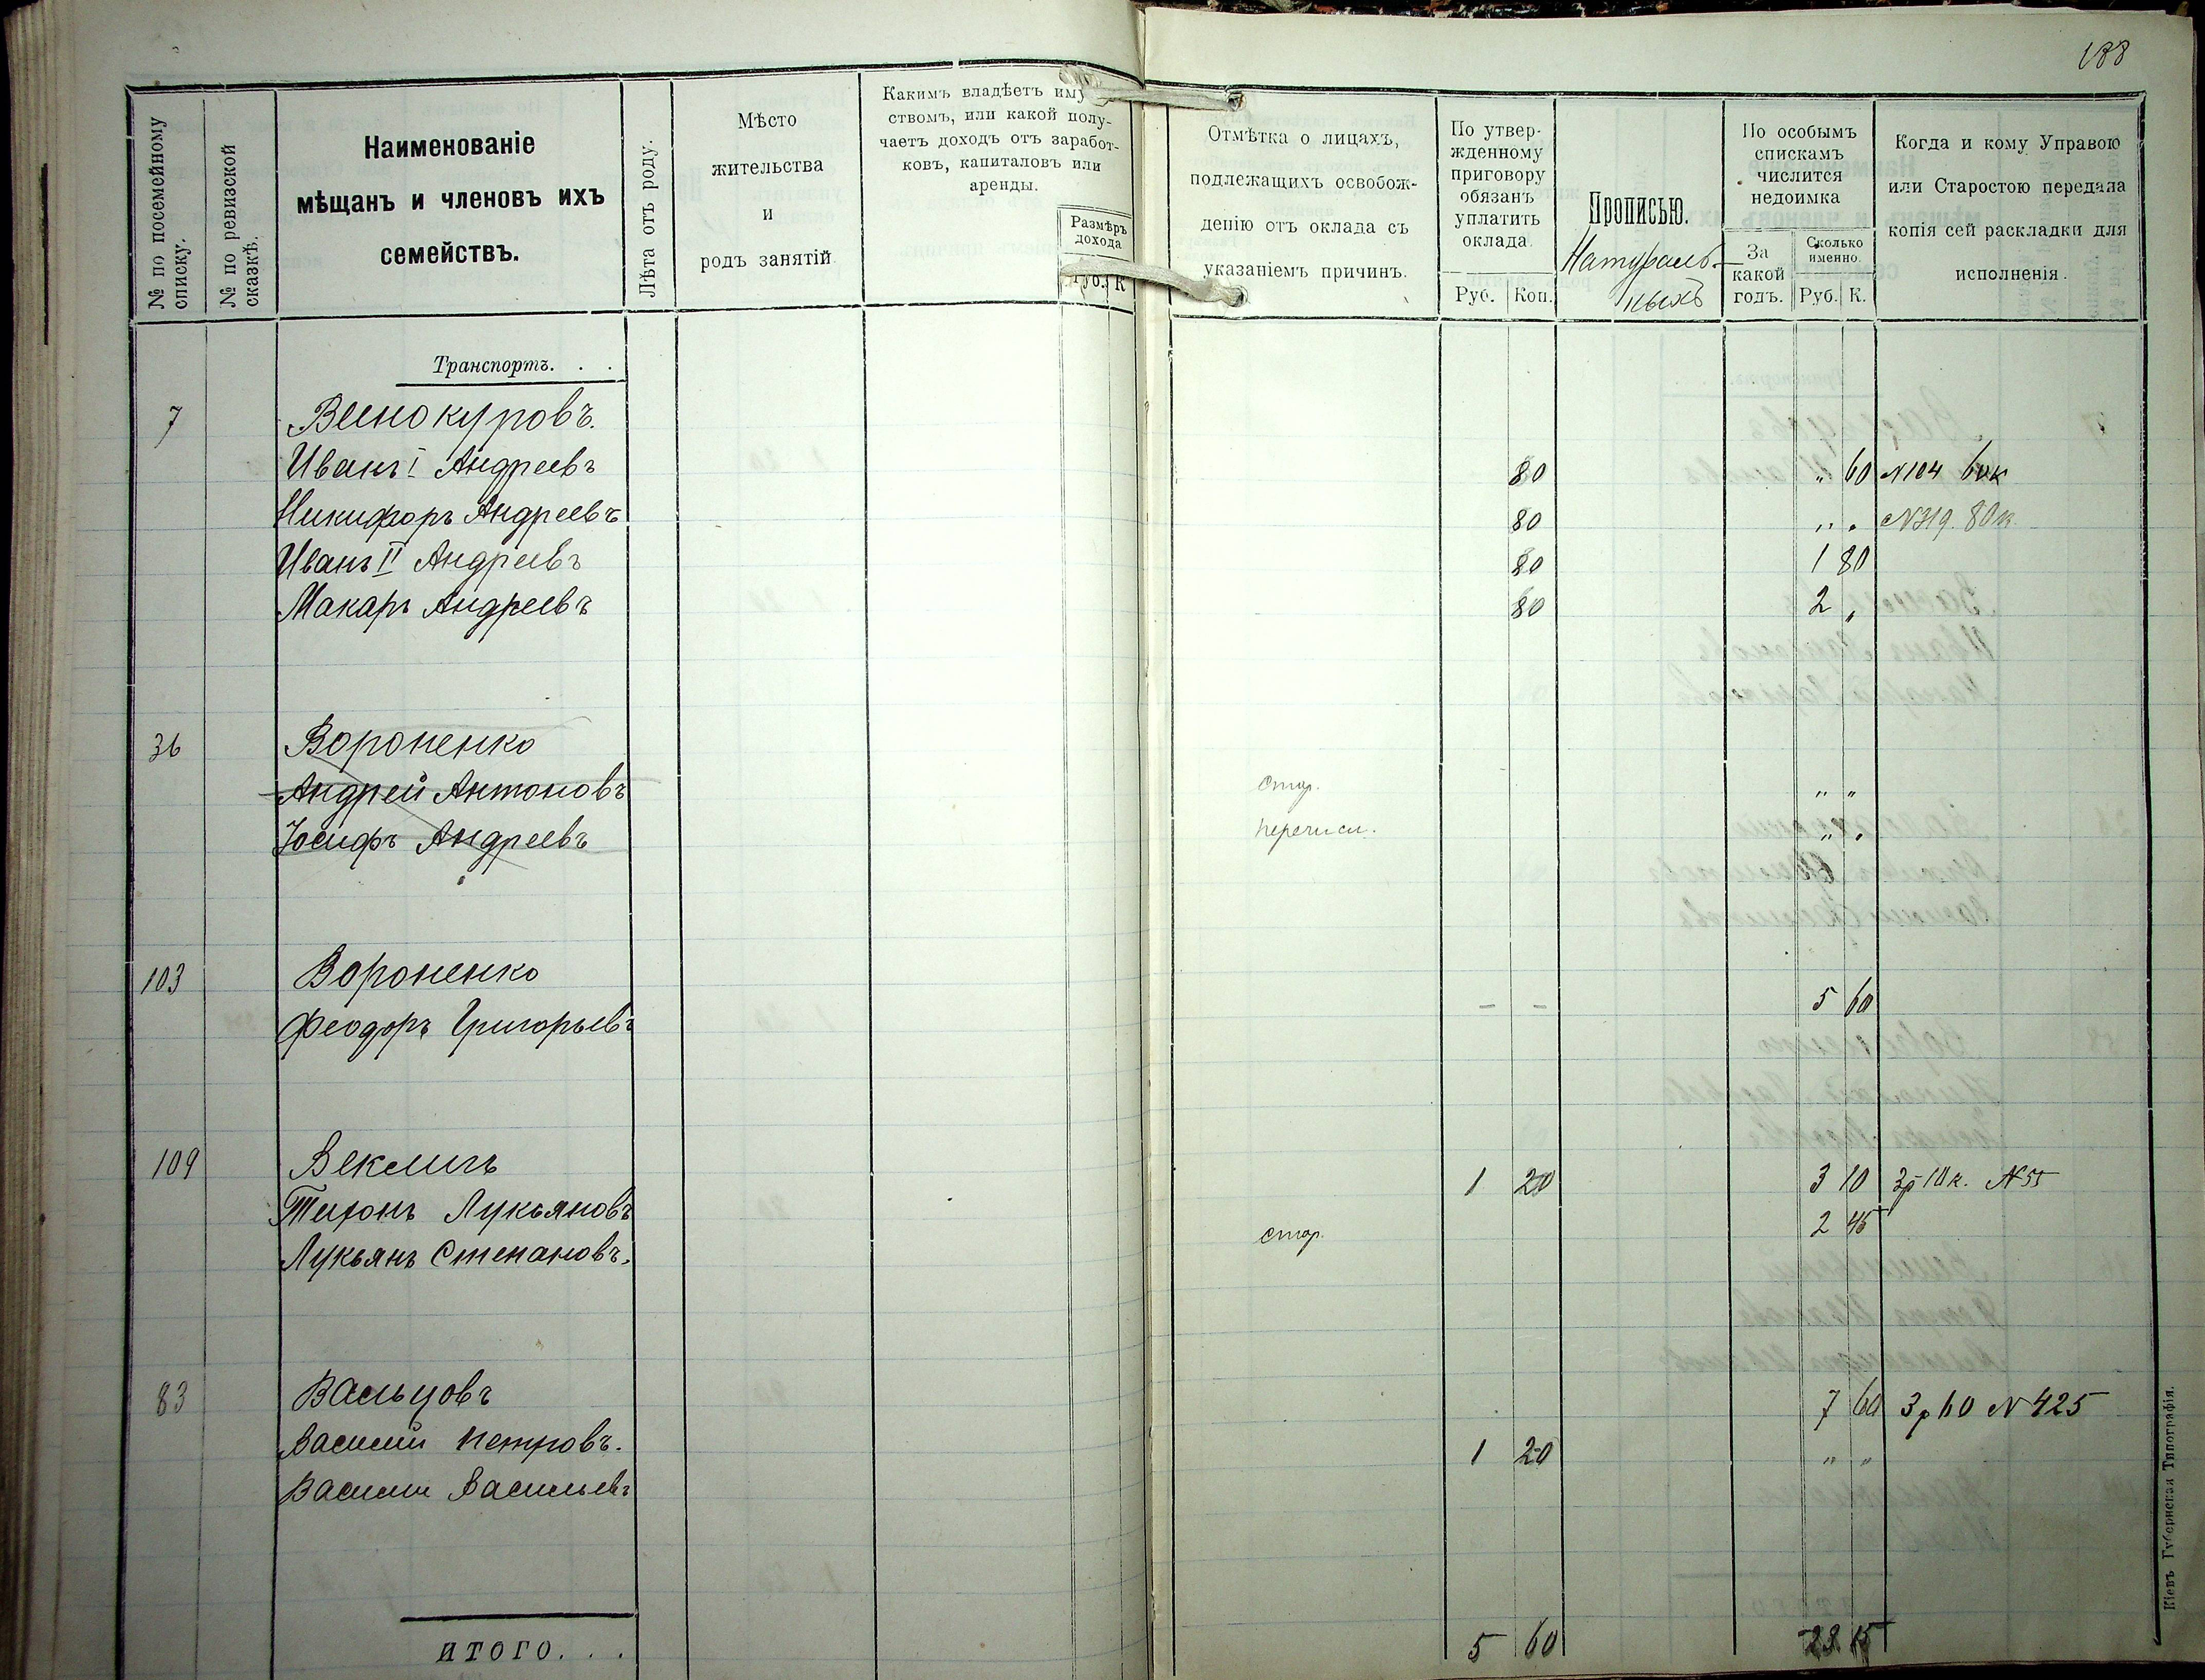 188
№ по посемейному списку.
№ по ревизской сказкѣ.
Наименованіе
мѣщанъ и членовъ ихъ
семействъ.
Лѣта отъ роду.
Мѣсто
жительства
и
родъ занятій
Какимъ владѣетъ иму
ствомъ, или какой полу-
чаетъ доходъ отъ заработ-
ковъ, капиталовъ или
аренды.
Размѣръ
дохода
Руб. К
Отмѣтка о лицахъ,
подлежащихъ освобож-
денію отъ оклада съ
указаніемъ причинъ.
По утвер-
жденному
приговору
обязанъ
уплатить
оклада
Руб. Коп.
Прописью.
Натураль-
ныхъ
По особымъ
спискамъ
числится
недоимка
За
какой
годъ.
Сколько
именно.
Руб. К.
Когда и кому Управою
или Старостою передана
копія сей раскладки для
исполненія.
Транспортъ. . .
7 Винокуровъ.
Иванъ I Андреевъ 80 " 60 №104 60к
Никифоръ Андреевъ 80 " " №319. 80к.
Иванъ II Андреевъ 80 1 80
Макаръ Андреевъ 80 2 "
36 Вороненко
Андрей Антоновъ стар. " "
Іосифъ Андреевъ перечисл. " "
103 Вороненко
Феодоръ Григорьевъ - - 5 60
109 Векличъ
Тихонъ Лукьяновъ 1 20 3 10 3р 10к. №55
Лукьянъ Степановъ. стар. 2 45
83 Вальцовъ
Василий Петровъ. 7 60 3р 60 №425
Василий Васильевъ 1 20 " "
ИТОГО. . . 5 60 23 15
Кіевъ Губернская Типографія.